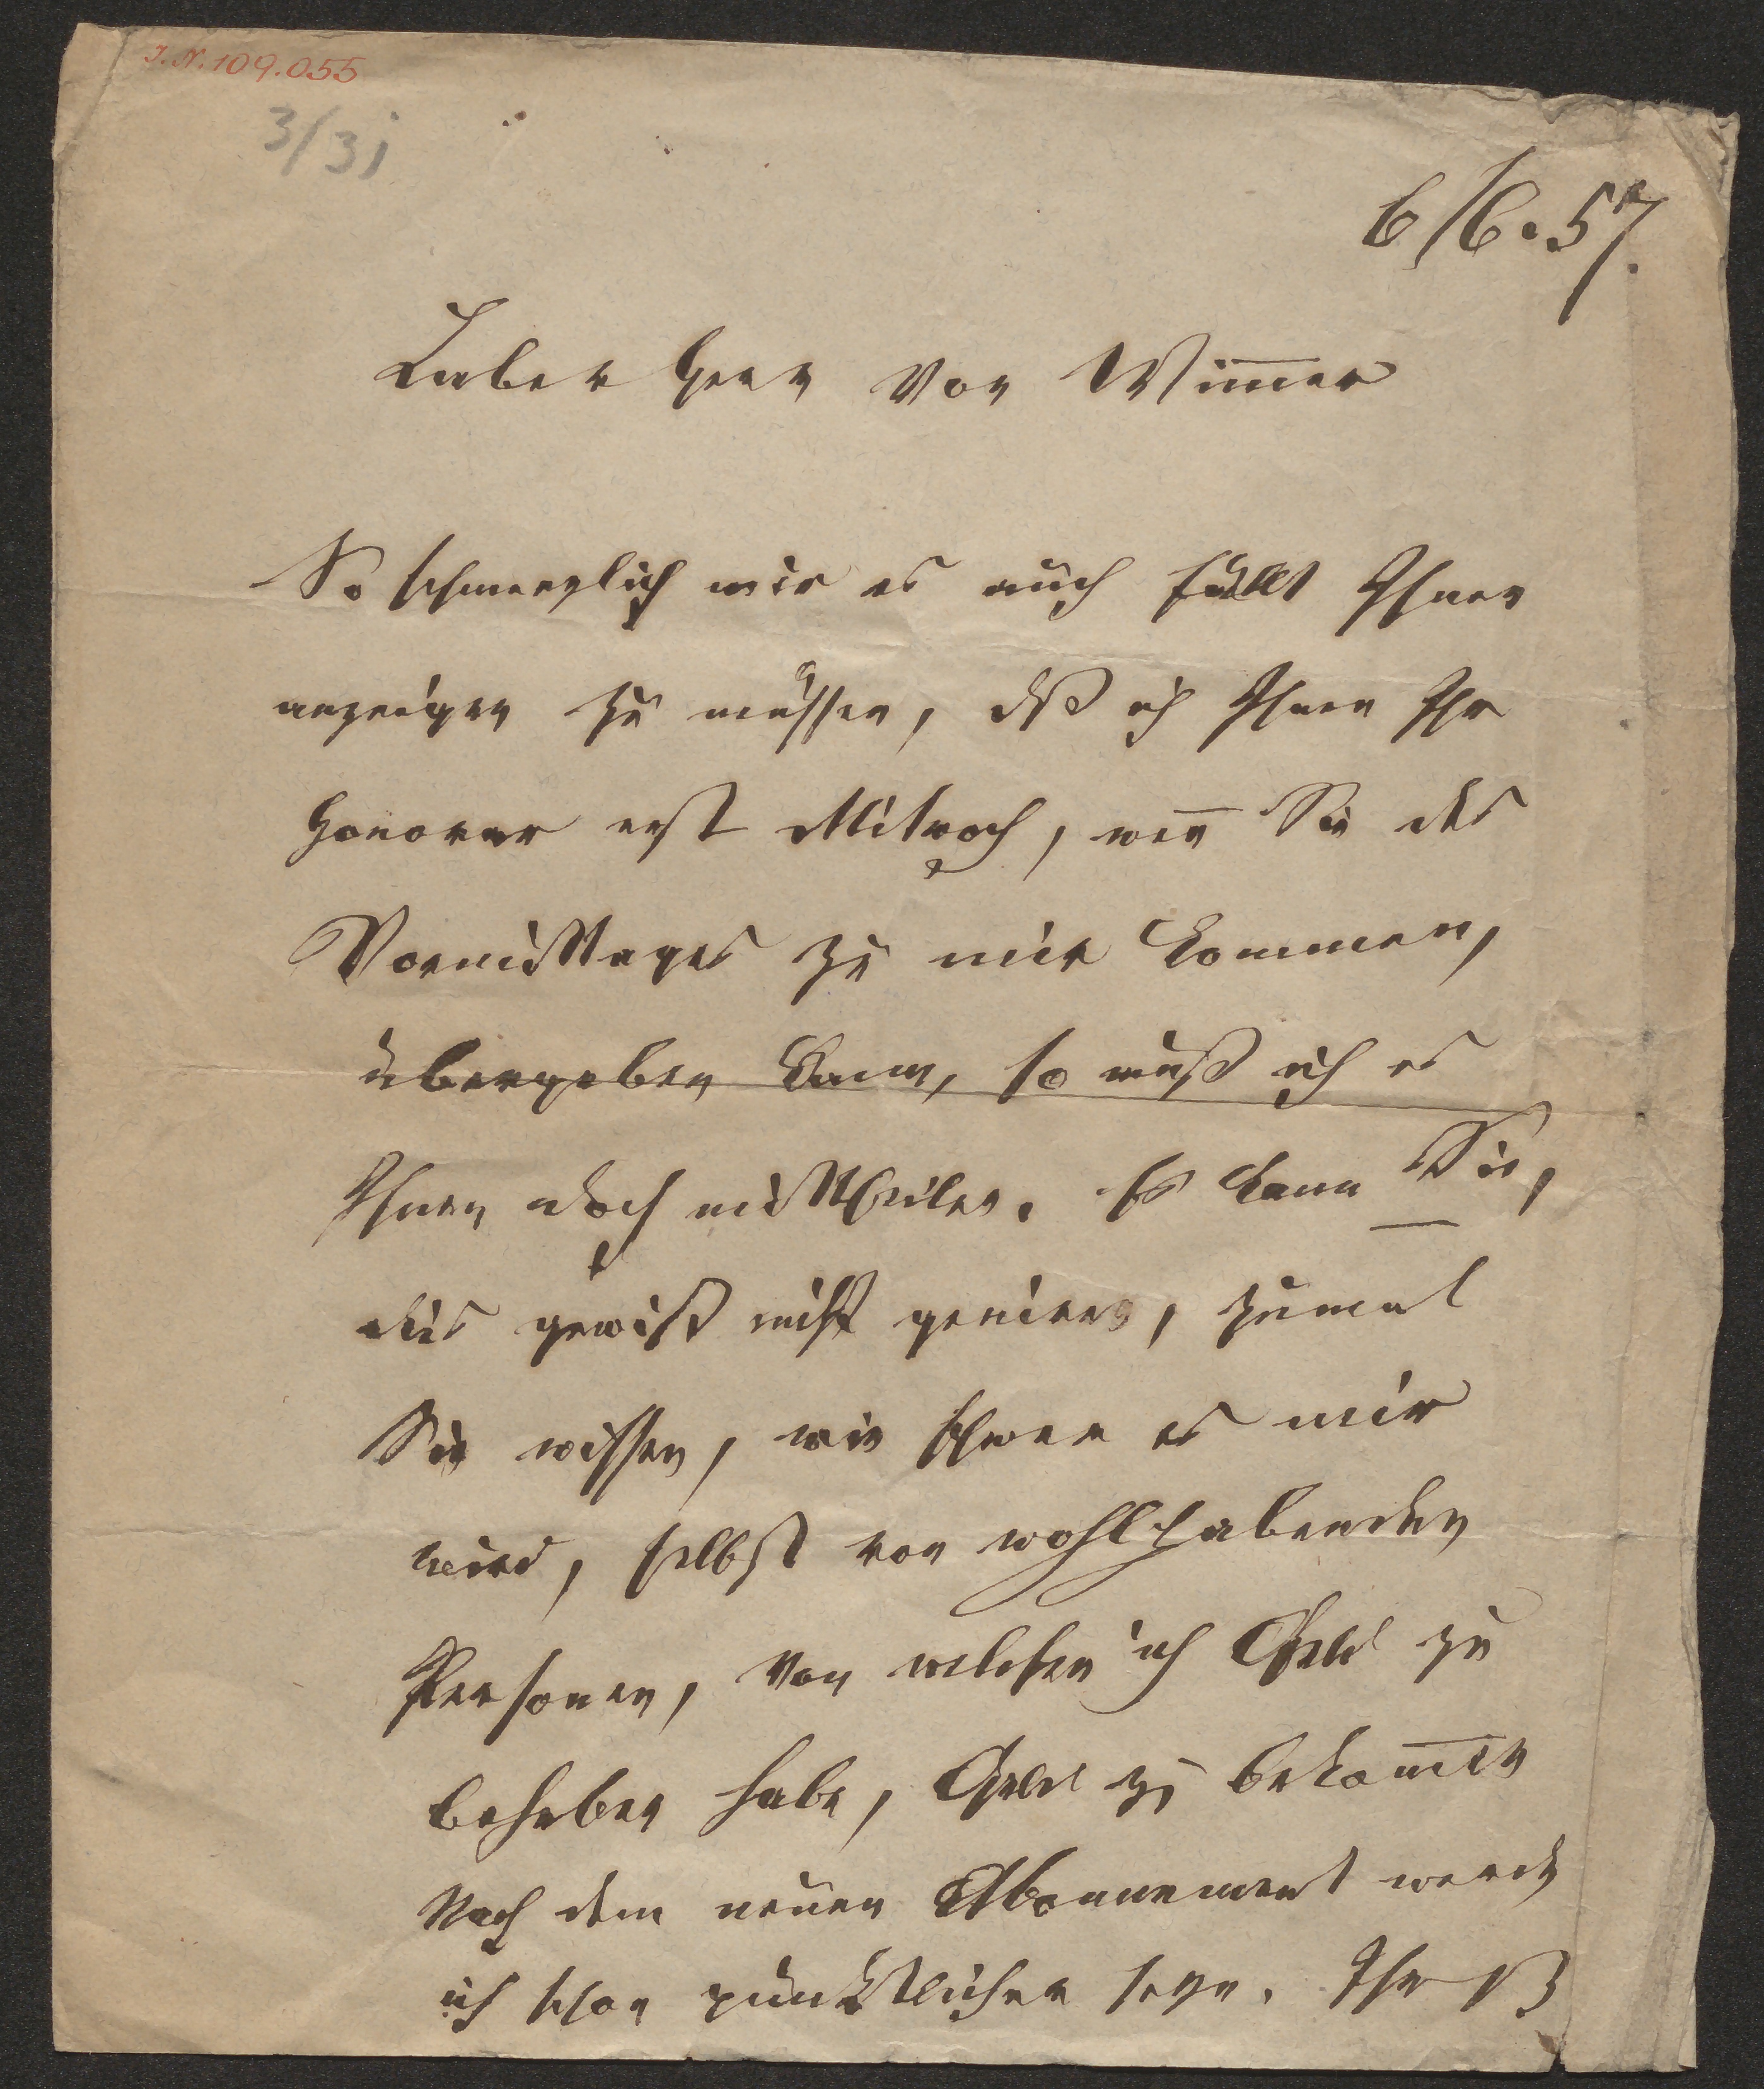 J. N. 109.055
3/3j
6/6.57.
Lieber Herr von Wim̅er
So schmerzlich mir es auch fällt Ihnen
anzeigen zu müssen, daß ich Ihnen Ihr
Honorar erst Mitwoch, wen̅ Sie des
Vormittages zu mir kommen,
übergeben kann, so muß ich es
Ihnen doch mittheilen. Es kann Sie,
dies gewiß nicht geniren, zumal
Sie wissen, wie schwer es mir
wird, selbst von wohlhabenden
Personen, von welchen ich Geld zu
beheben habe, Geld zu bekom̅en
Nach dem neuen Abonnement werde
ich schon pünktlicher seyn. Ihr